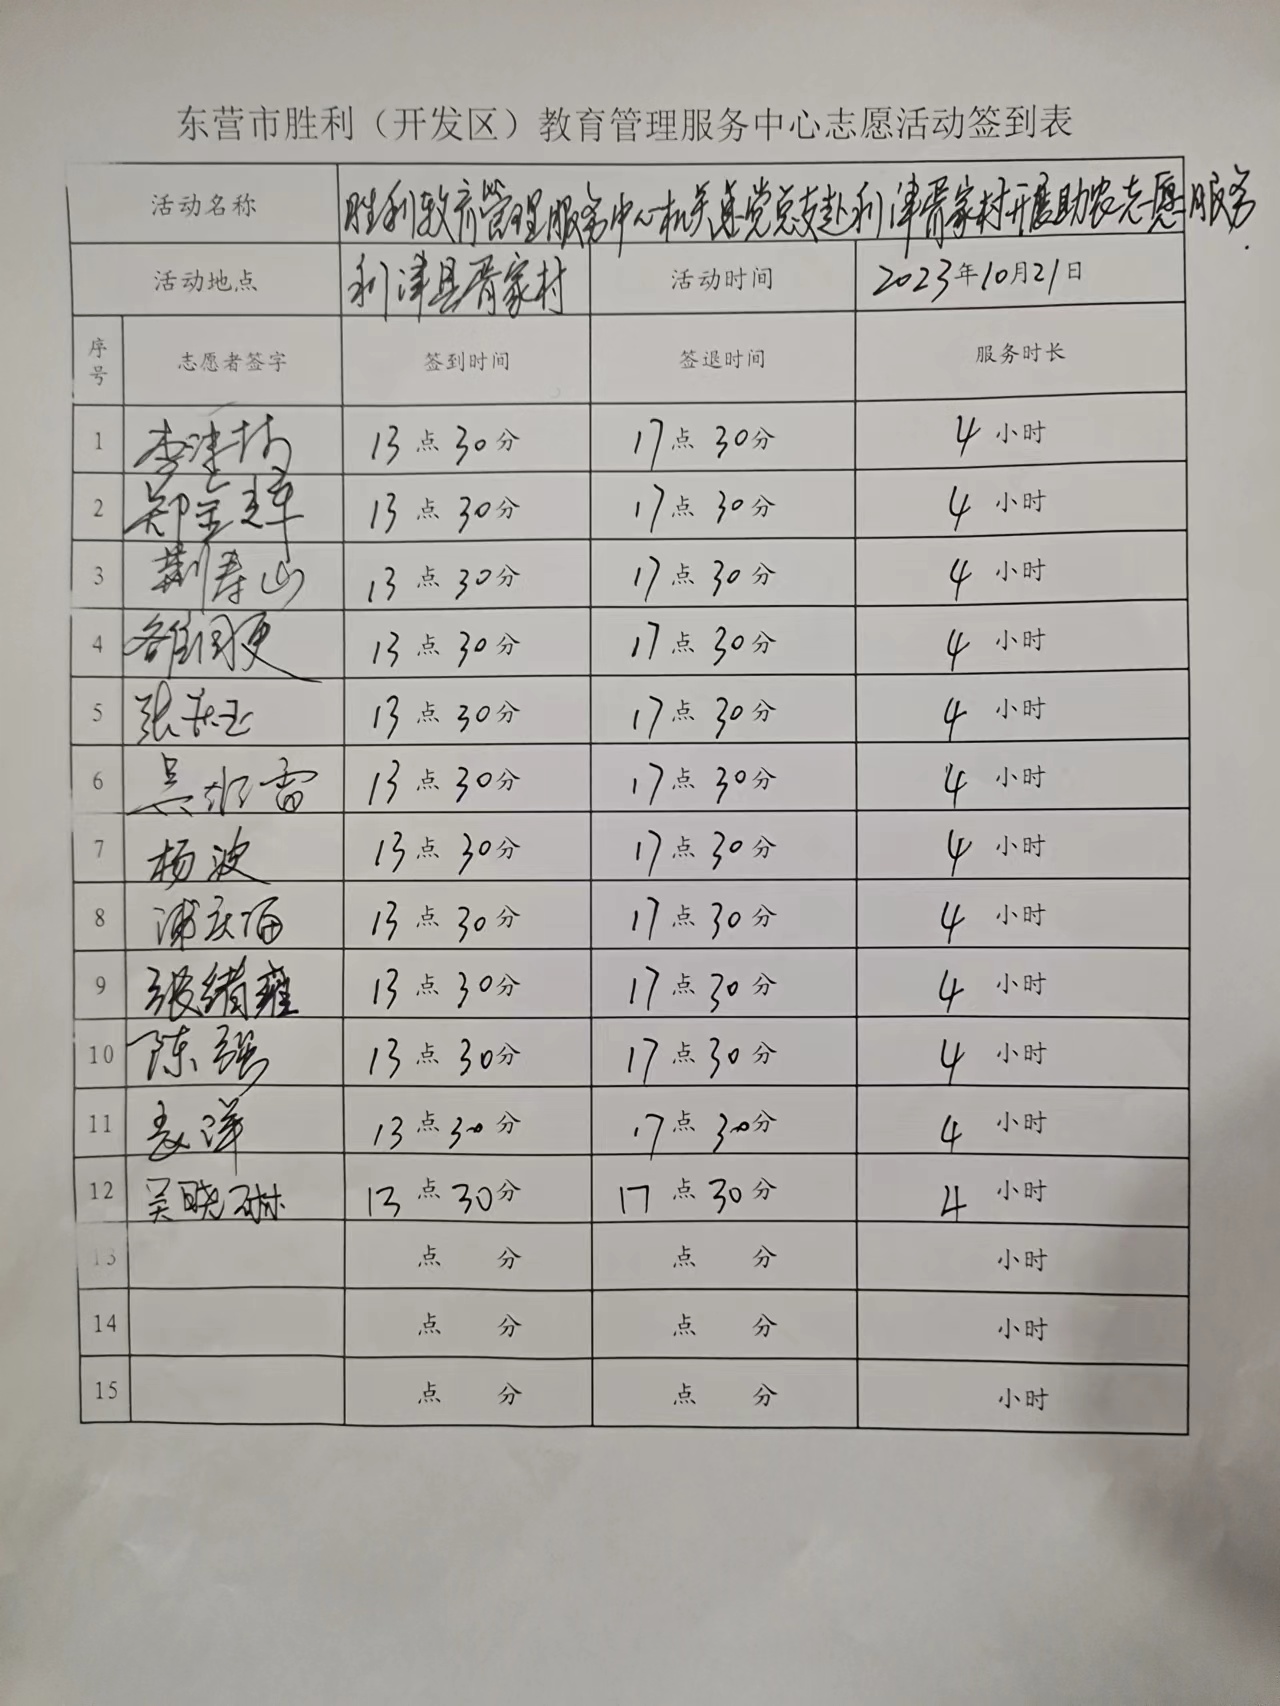 东营市胜利（开发区）教育管理服务中心志愿活动签到表
活动名称 胜利教育管理服务中心机关某党总支赴利津胥家村开展助农志愿服务.
活动地点 利津县胥家村 活动时间 2023年10月21日
序号 志愿者签字 签到时间 签退时间 服务时长
1 13点30分 17点30分 4小时
2 郑金璋 13点30分 17点30分 4小时
3 荆寿山 13点30分 17点30分 4小时
4 13点30分 17点30分 4小时
5 张 13点30分 17点30分 4小时
6 吴 雷 13点30分 17点30分 4小时
7 杨波 13点30分 17点30分 4小时
8 浦庆海 13点30分 17点30分 4小时
9 张绪雍 13点30分 17点30分 4小时
10 陈强 13点30分 17点30分 4小时
11 袁洋 13点30分 17点30分 4小时
12 吴晓琳 13点30分 17点30分 4小时
13 点 分 点 分 小时
14 点 分 点 分 小时
15 点 分 点 分 小时